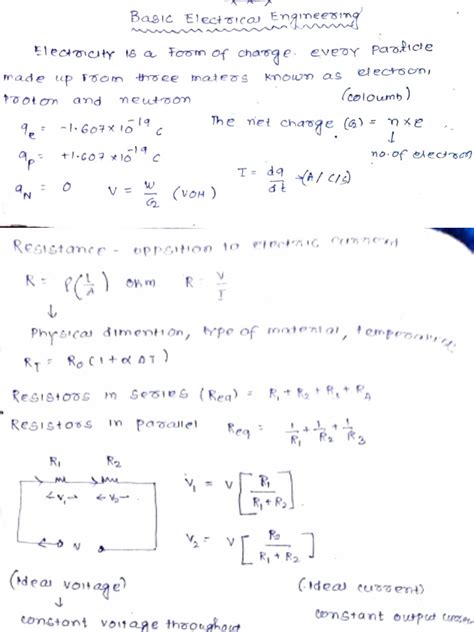 Basic Electrical Engineering
Electricity is a Form of charge. every particle
made up From three maters known as electron,
proton and neutron (coloumb)
qe = -1.607×10^-19 C The net charge (Q) = n×e
↓
qp = +1.607×10^-19 C no. of electron
qN = 0 V = W/Q (VOH) I = dq/dt (A/C/s)
Resistance - oppsition to electric current
R = ρ(l/A) ohm R = V/I
↓
Physical dimention, type of material, temperature.
RT = R0 (1+α ΔT)
Resistors in series (Req) = R1 + R2 + R1 + R4
Resistors in parallel Req = 1/R1 + 1/R2 + 1/R3
R1 R2
V1 = V [R1/R1+R2]
←V1→ ←V2→
V2 = V [R2/R1+R2]
V
(Ideal voltage) (Ideal current)
↓
constant voltage throughout constant output current